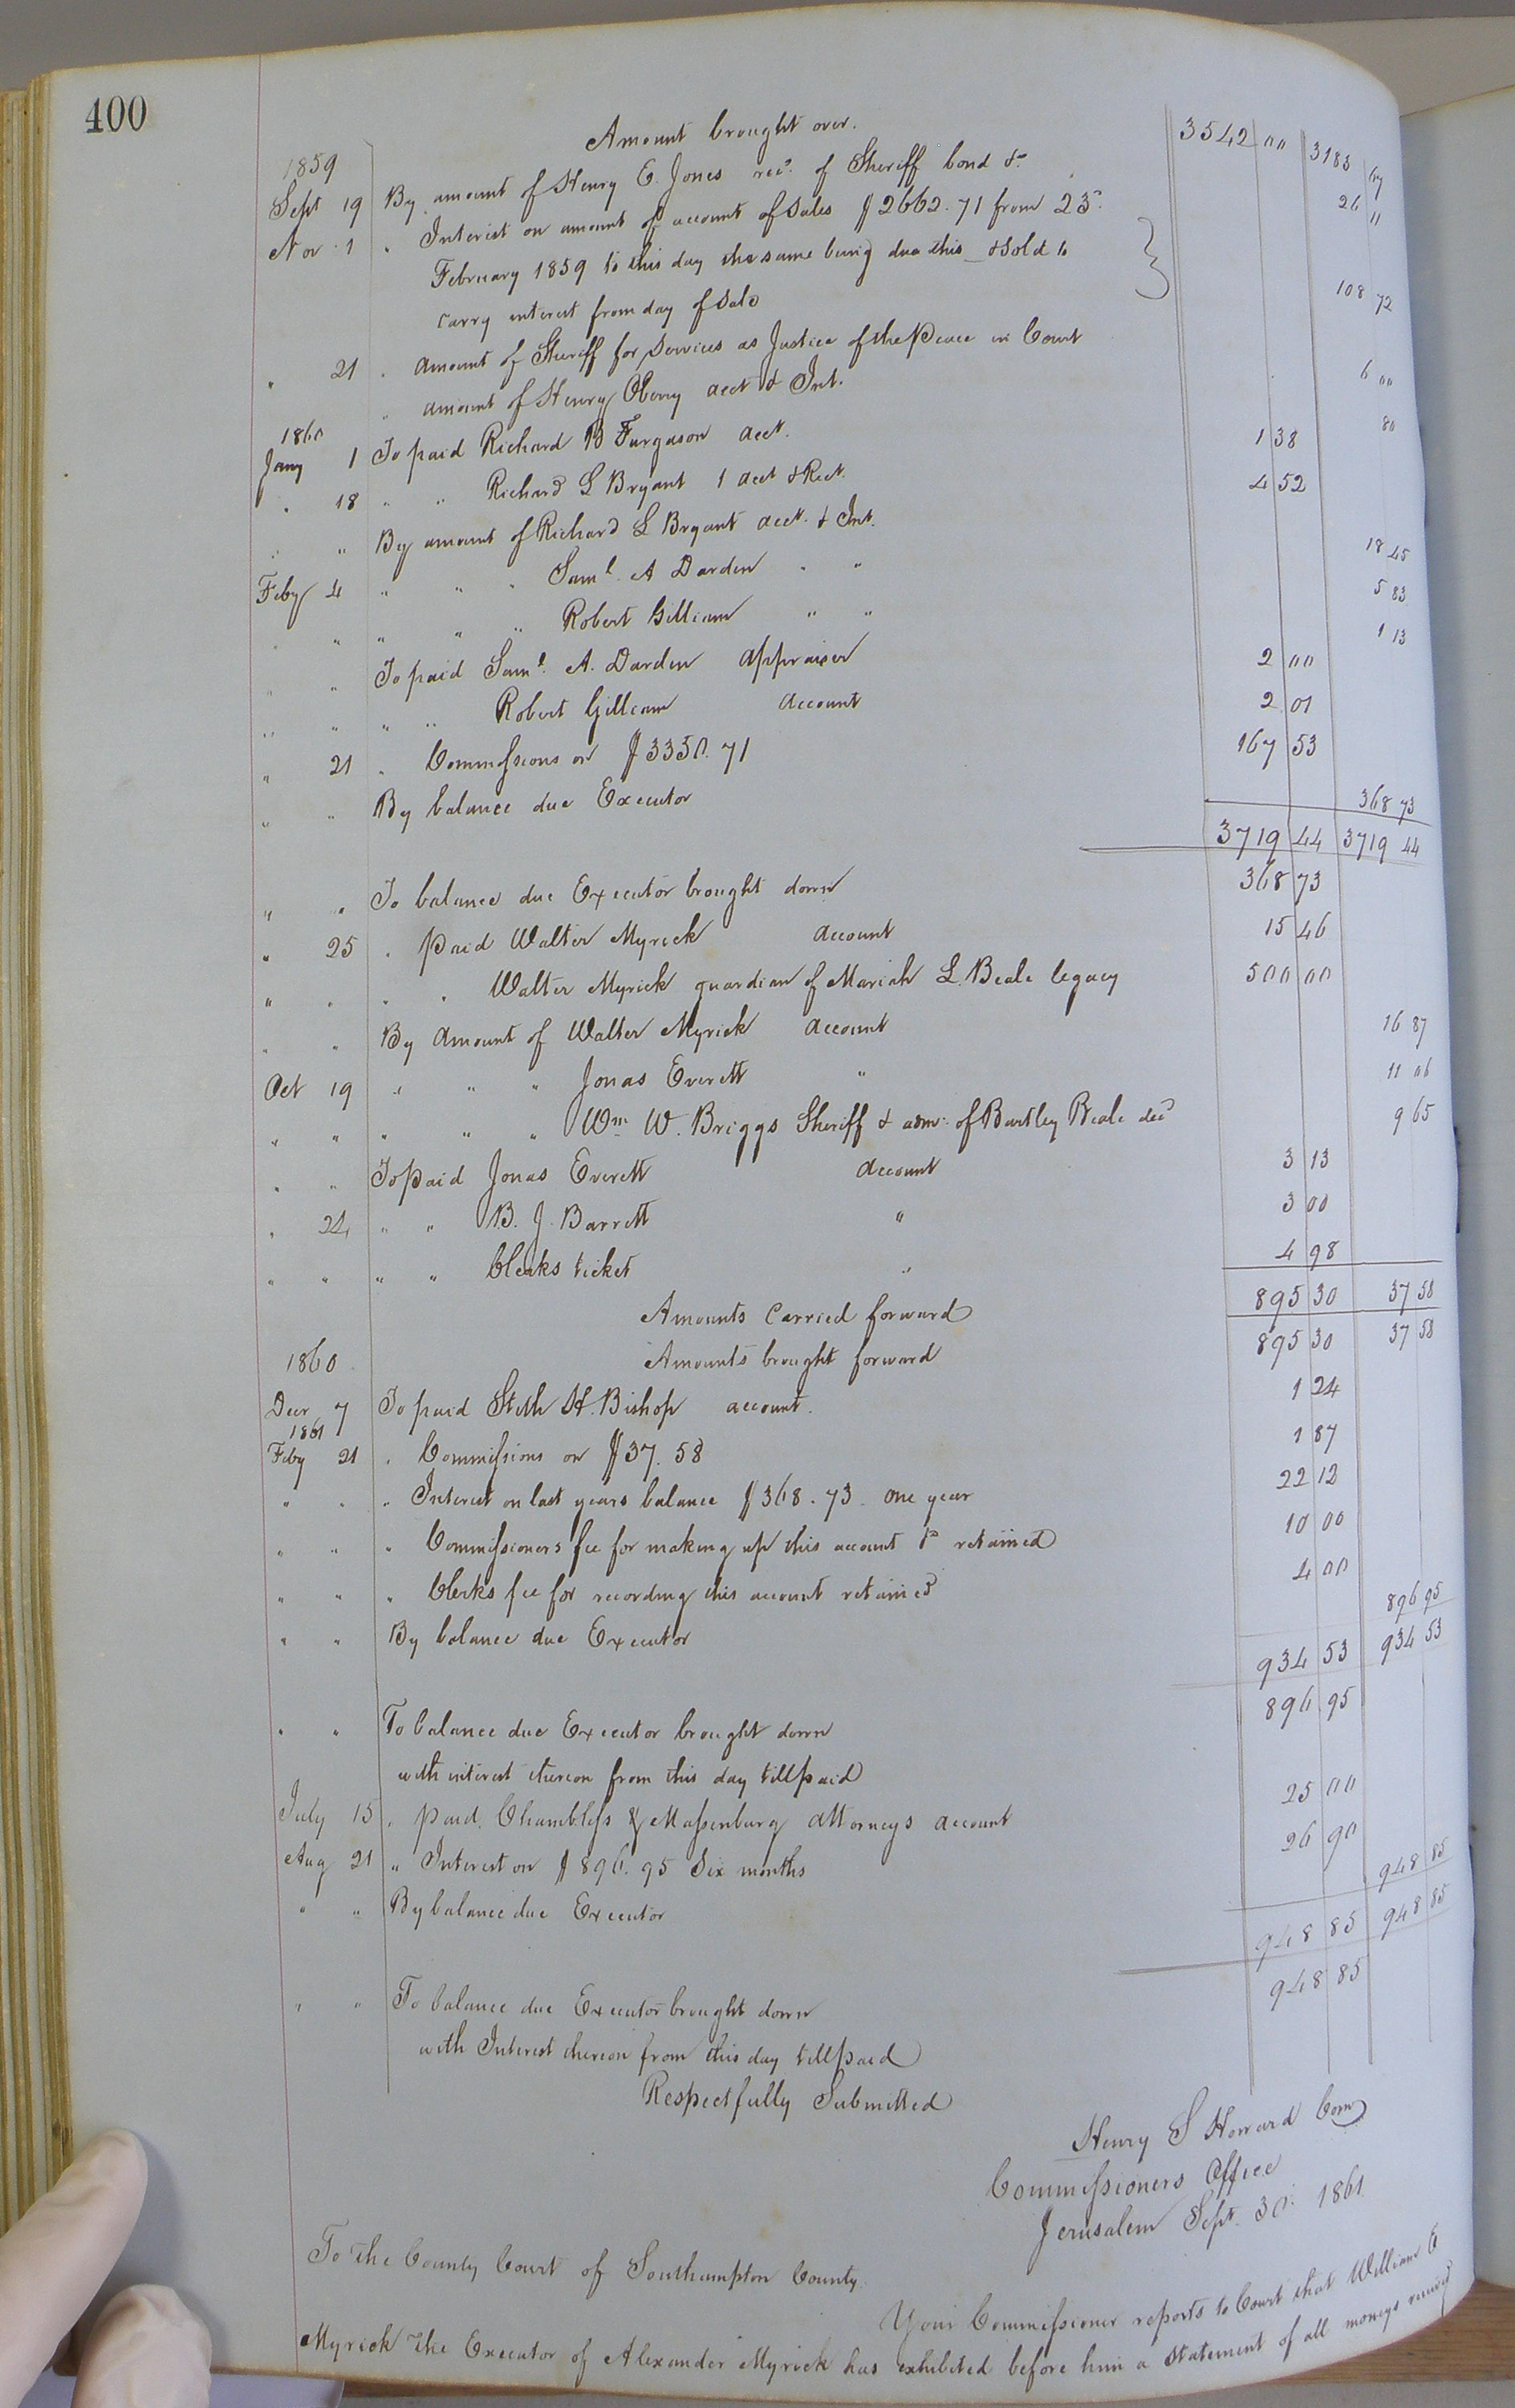 400
Amount brought over. 3542 00 3183 67
1859
Sept 19 By amount of Henry E. Jones rec. of Sheriff bond &c 26 11
Nov 1 " Interest on amount of account of Sales $2662.71 from 23
February 1859 to this day the same being due this & sold to
carry interest from day of sale 108 72
" 21 " amount of Sheriff for Services as Justice of the Peace in Court 6 00
" amount of Henry Oberry acct & Int. 80
1860
Jany 1 To paid Richard B Furgason acct. 1 38
" 18 " " Richard L Bryant 1 acct & Rect. 4 52
" " By amount of Richard L Bryant acct. & Int. 18 45
Feby 4 " " " Saml. A Darden " " 5 83
" " " " " Robert Gilliam " " 1 13
" " To paid Saml. A. Darden appraiser 2 00
" " " " Robert Gilliam account 2 01
" 21 " Commissions on $3350.71 167 53
" " By balance due Executor 368 73
3719 44 3719 44
" " To balance due Executor brought down 368 73
" 25 " paid Walter Myrick account 15 46
" " " " Walter Myrick guardian of Mariah L. Beale legacy 500 00
" " By Amount of Walter Myrick account 16 87
Oct 19 " " " Jonas Everett " 11 06
" " " " " Wm W. Briggs Sheriff & admr. of Bartley Beale decd 9 65
" " To paid Jonas Everett account 3 13
" 24 " " B. J. Barrett " 3 00
" " " " Clerks ticket " 4 98
Amounts Carried forward 895 30 37 58
1860 Amounts brought forward 895 30 37 58
Decr 7 To paid Stith H. Bishop account. 1 24
1861
Feby 21 " Commissions on $37.58 1 87
" " " Interest on last years balance $368.73 one year 22 12
" " " Commissioners fee for making up this account &c retained 10 00
" " " Clerks fee for recording this account retained 4 00
" " By balance due Executor 896 95
934 53 934 53
" " To balance due Executor brought down 896 95
with interest thereon from this day till paid
July 15 " paid Chambliss & Massenburg attorneys account 25 00
Aug 21 " Interest on $896.95 Six months 26 90
" " By balance due Executor 948 85
948 85 948 85
" " To balance due Executor brought down 948 85
with Interest thereon from this day till paid
Respectfully Submitted
Henry S Howard Com
Commissioners Office
Jerusalem Sept. 30. 1861
To the County Court of Southampton County
Your Commissioner reports to Court that William
Myrick the Executor of Alexander Myrick has exhibited before him a statement of all moneys received